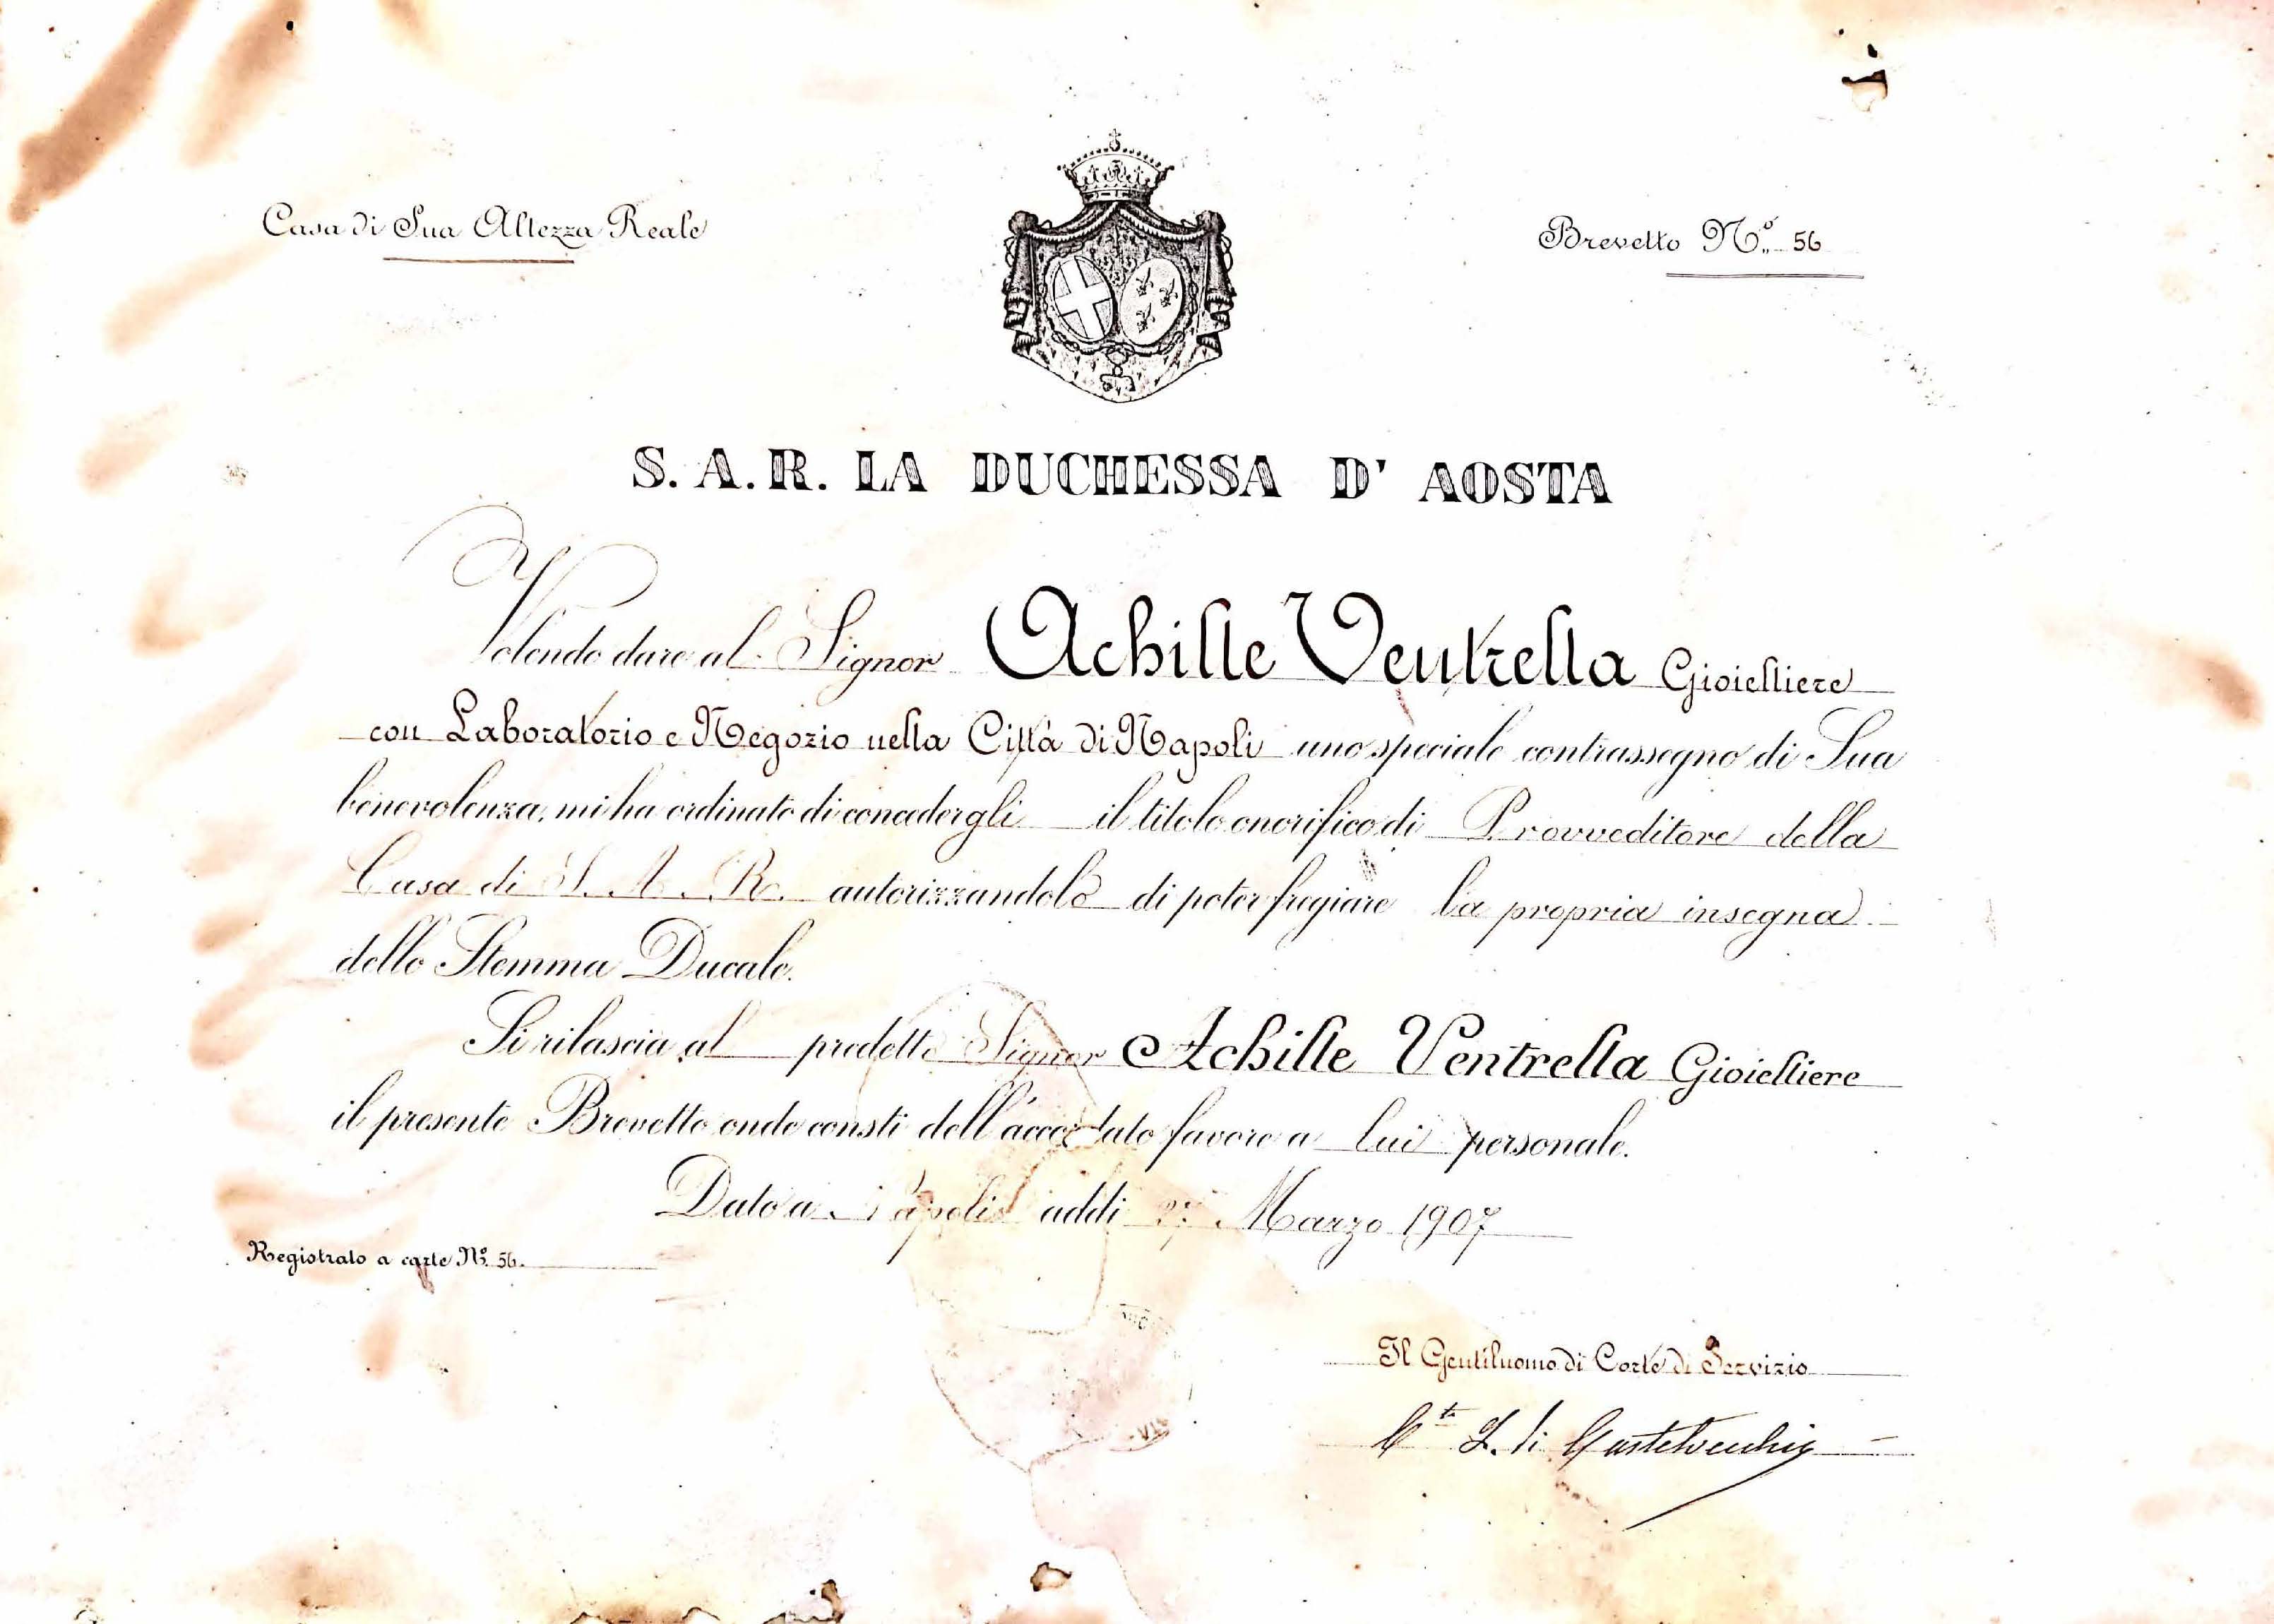 Casa di Sua Altezza Reale
Brevetto Nº 56
S. A. R. LA DUCHESSA D' AOSTA
Volendo dare al Signor Achille Ventrella Gioielliere
con Laboratorio e Negozio nella Città di Napoli uno speciale contrassegno di Sua
benevolenza, mi ha ordinato di concedergli il titolo onorifico di Provveditore della
Casa di S. A. R. autorizzandolo di poter fregiare la propria insegna
dello Stemma Ducale.
Si rilascia al predetto Signor Achille Ventrella Gioielliere
il presente Brevetto onde consti dell'accordato favore a lui personale.
Dato a Napoli addi 27 Marzo 1907
Registrato a carte Nº 56.
Il Gentiluomo di Corte di Servizio
Cte L. di Castelvecchio